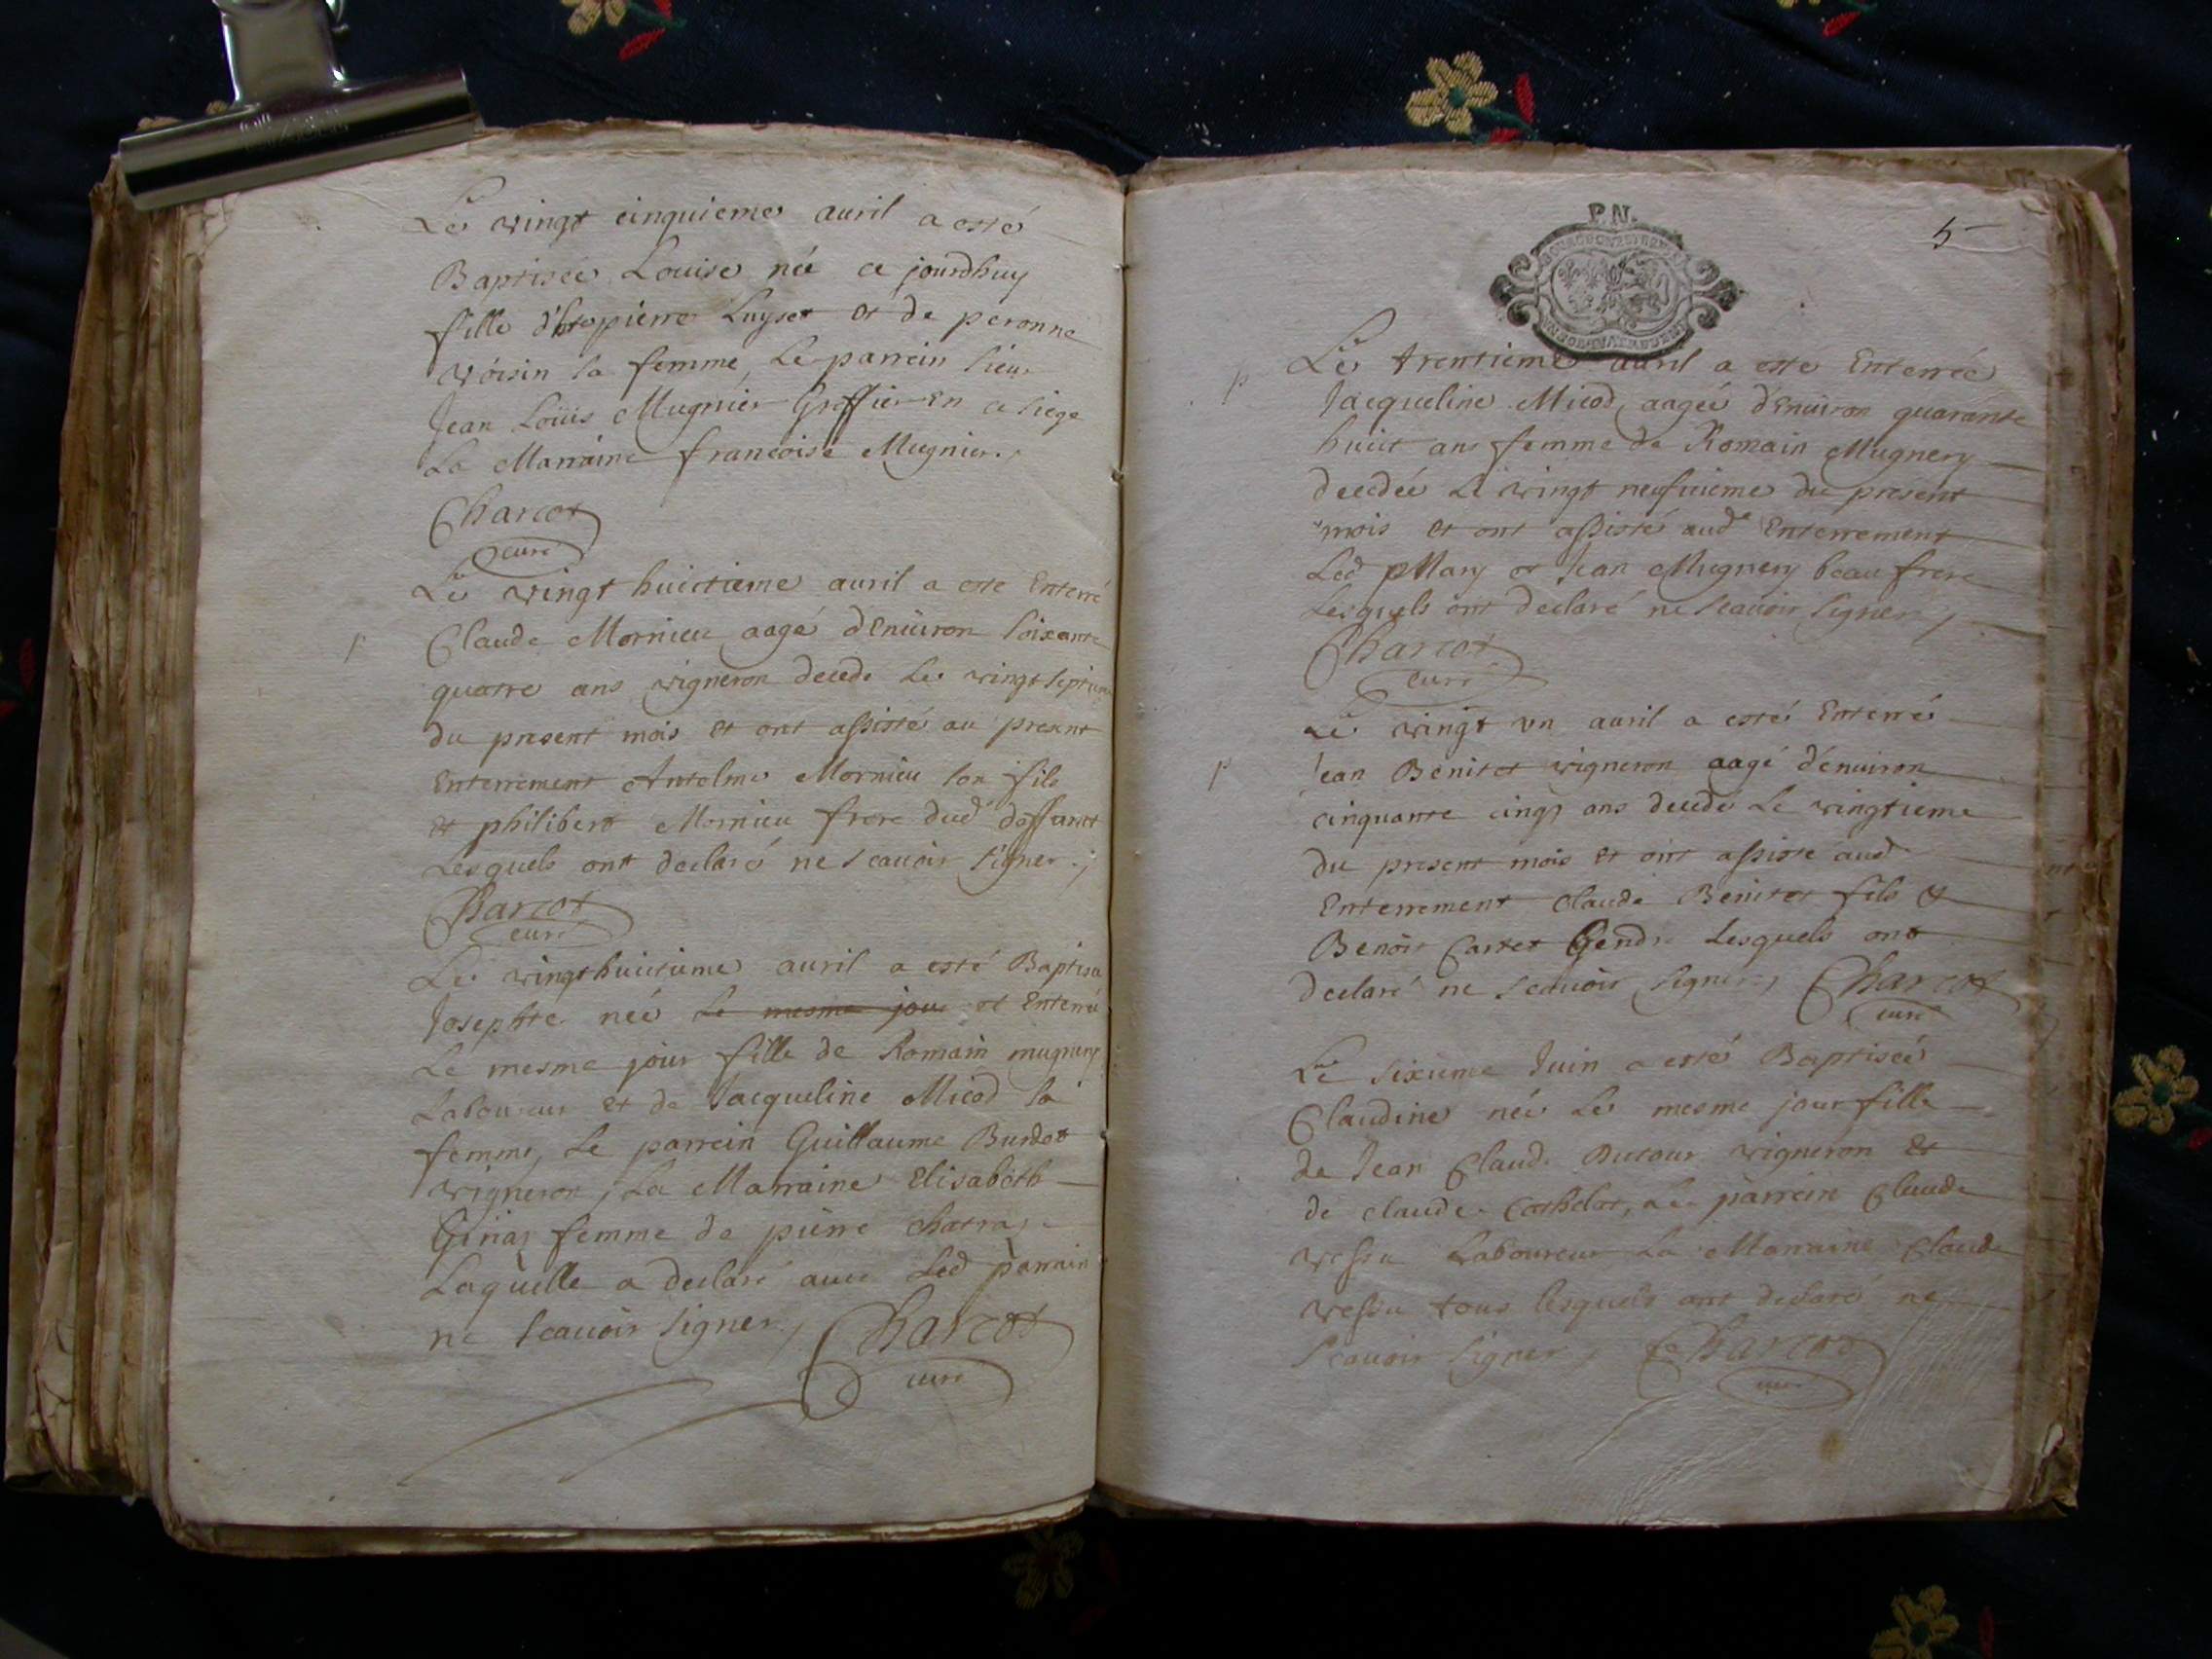 Le vingt cinquieme auril a esté
Baptisée Louise née ce jourdhuy
fille pierre Luyset et de peronne
voisin sa femme, Le parrein sieur
Jean Loüis Mugnier Greffier En ce siege
La Marraine francoise Mugnier.
Charcot
curé
Le vingt huictieme auril a esté Enterré
Claude Mornieu aagé d'Enuiron soixante
quatre ans vigneron decedé Le vingt septieme
du present mois et ont assisté au present
Enterrement Antelme Mornieu son fils
et philibert Mornieu frere dud deffunct
Lesquels ont declaré ne scauoir signer.
Charcot
curé
Le vingthuictieme auril a esté Baptisée
Josephte née Le mesme jour et Enterrée
Le mesme jour fille de Romain mugnery
Laboureur et de Jacqueline Micod sa
femme, Le parrein Guillaume Burdet
vigneron, La Marraine Elisabeth
femme de pierre
Laquelle a declaré auec Led parrain
ne scauoir signer, Charcot
curé
P.N.
5
Le trentieme auril a esté Enterrée
p Jacqueline Micod aagée d'Enuiron quarante
huict ans femme de Romain Mugnery
decedée Le vingt neufuieme du present
mois et ont assisté aud Enterrement
Led Mary et Jean Mugnery beau frere
Lesquels ont declaré ne scauoir signer,
Charcot
curé
Le vingt vn auril a esté Enterré
p Jean Benitet vigneron aagé d'enuiron
cinquante cinq ans decedé Le vingtieme
du present mois et ont assisté aud
Enterrement Claude Benitet fils et
Benoit Cartet Gendre Lesquels ont
declaré ne scauoir signer, Charcot
curé
Le sixieme Juin a esté Baptisée
Claudine née Le mesme jour fille
de Jean Claude Dutour vigneron et
de claude Cathelot, Le parrein Claude
vessu Laboureur La Marraine Claude
vessu tous lesquels ont declaré ne
scauoir signer, Charcot
curé